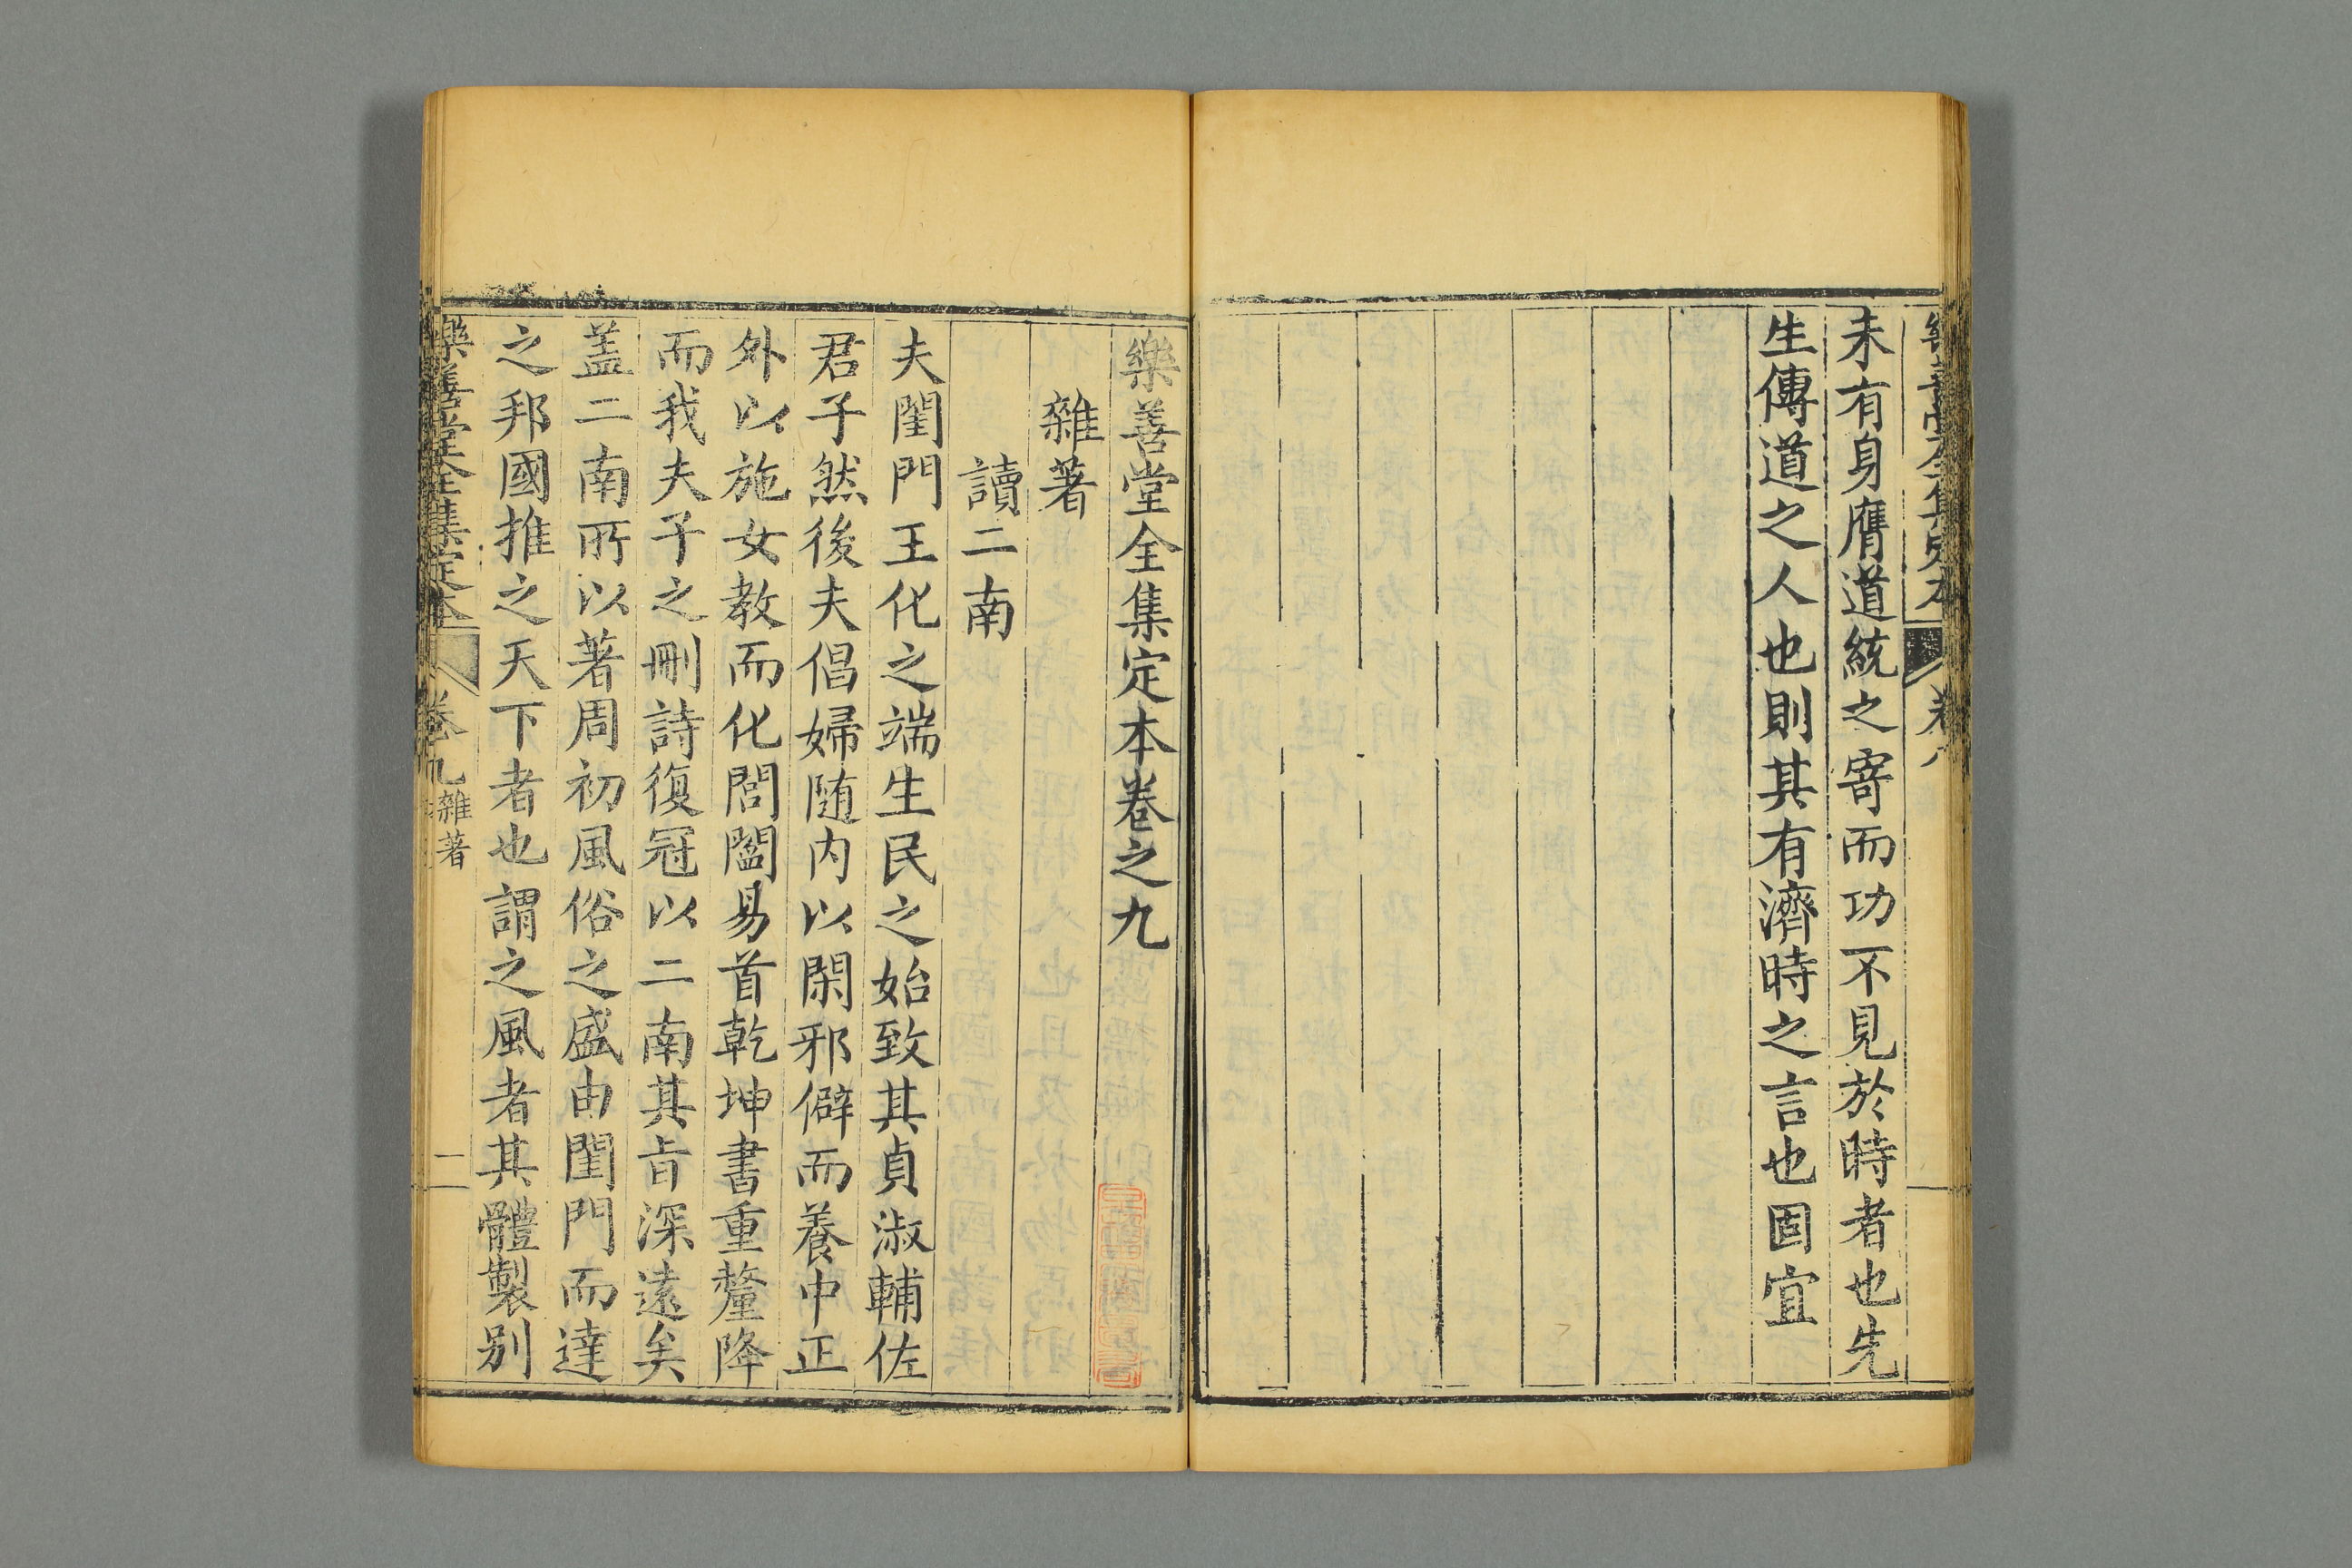 未有身膺道統之寄而功不見於時者也先
生傳道之人也則其有濟時之言也固宜
樂善堂全集定本卷之九
雜著
讀二南
夫閨門王化之端生民之始致其貞淑輔佐
君子然後夫倡婦随内以閑邪僻而養中正
外以施女教而化閭閻易首乾坤書重釐降
而我夫子之刪詩復冠以二南其㫖深遠矣
葢二南所以著周初風俗之盛由閨門而達
之邦國推之天下者也謂之風者其體製别
樂善堂全集定本 卷九 雜著 二